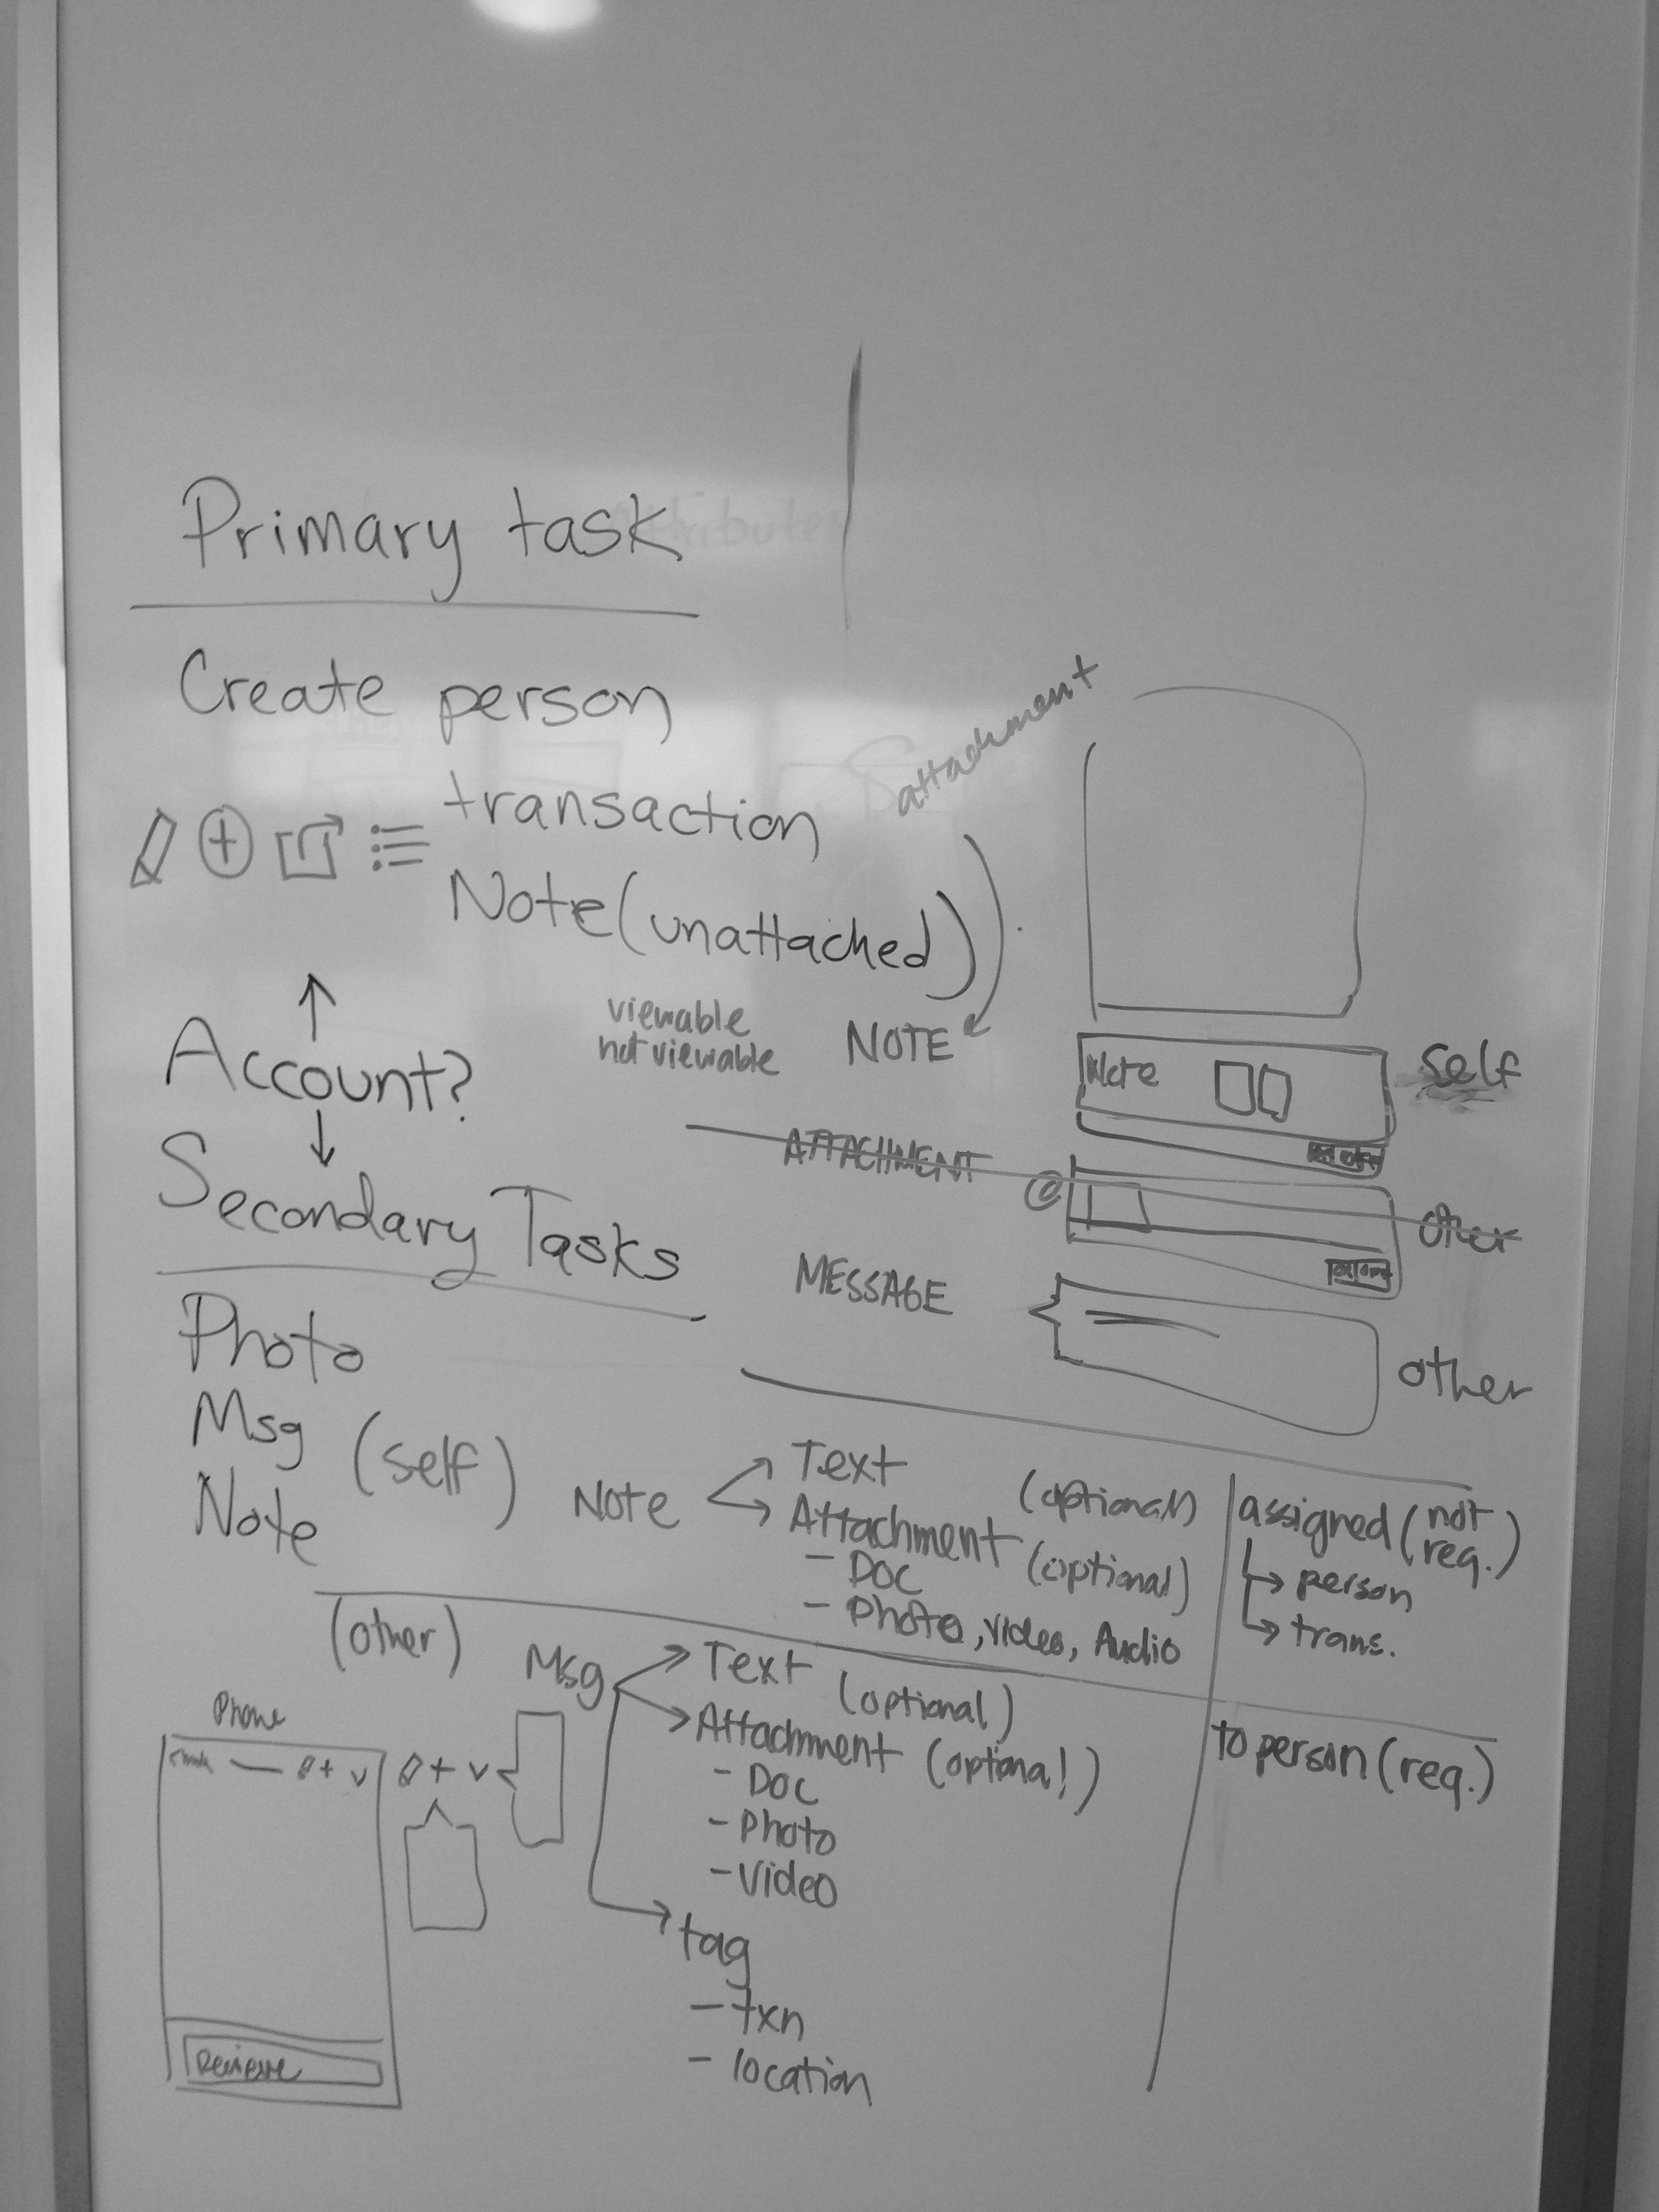 Primary task
Create person
transaction
Note (unattached)
attachment
viewable
not viewable
NOTE
Note
self
Account?
ATTACHMENT
@
other
Secondary Tasks
MESSAGE
other
Photo
Msg
Note
(self)
Note
Text (optional)
Attachment (optional)
- DOC
- Photo, Video, Audio
assigned (not req.)
person
trans.
(other)
Msg
Text (optional)
Attachment (optional)
- DOC
- Photo
- Video
tag
- txn
- location
to person (req.)
Phone